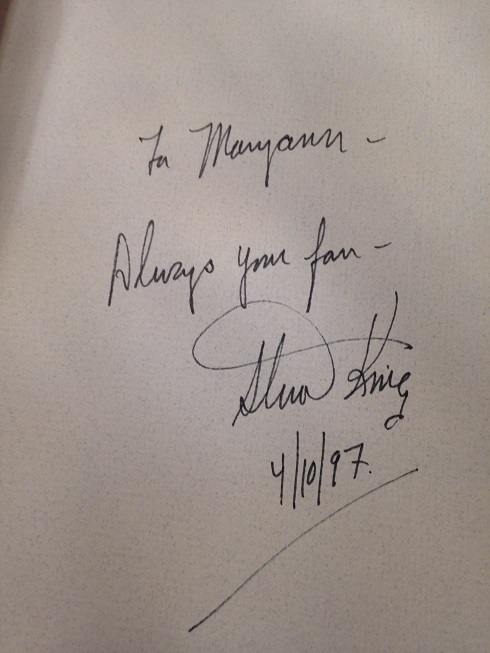 To Maryann -
Always your fan -
Steve King
4/10/97.